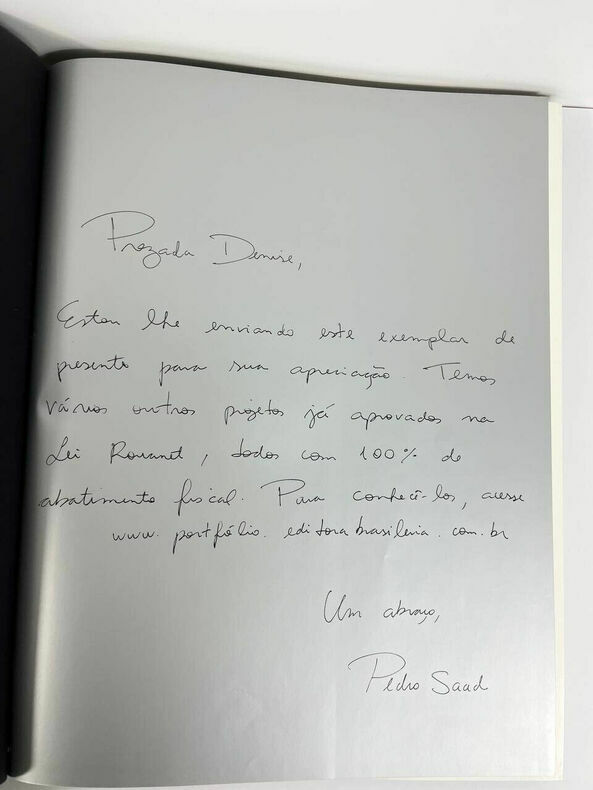 Prezada Denise,
Estou lhe enviando este exemplar de
presente para sua apreciação. Temos
vários outros projetos já aprovados na
Lei Rouanet, todos com 100% de
abatimento fiscal. Para conhecê-los, acesse
www.portfólio.editorabrasileira.com.br
Um abraço,
Pedro Saad